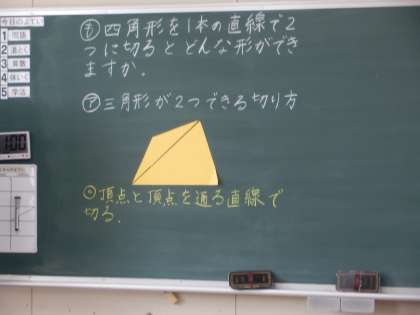 今日のよてい
1 国語
2
3 算数
4
5 学活
100
も 四角形を1本の直線で2
つに切るとどんな形ができ
ますか.
ア 三角形が2つできる切り方
頂点と頂点を通る直線で
切る.